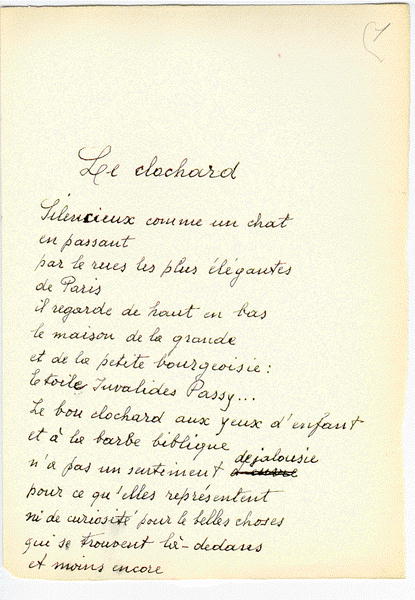 1
Le clochard
Silencieux comme un chat
en passant
par le rues les plus élégantes
de Paris
il regarde de haut en bas
le maison de la grande
et de la petite bourgeoisie :
Etoile Invalides Passy...
Le bon clochard aux yeux d'enfant
et à la barbe biblique
de jalousie
n'a pas un sentiment
pour ce qu'elles représentent
ni de curiosité pour le belles choses
qui se trouvent là-dedans
et moins encore